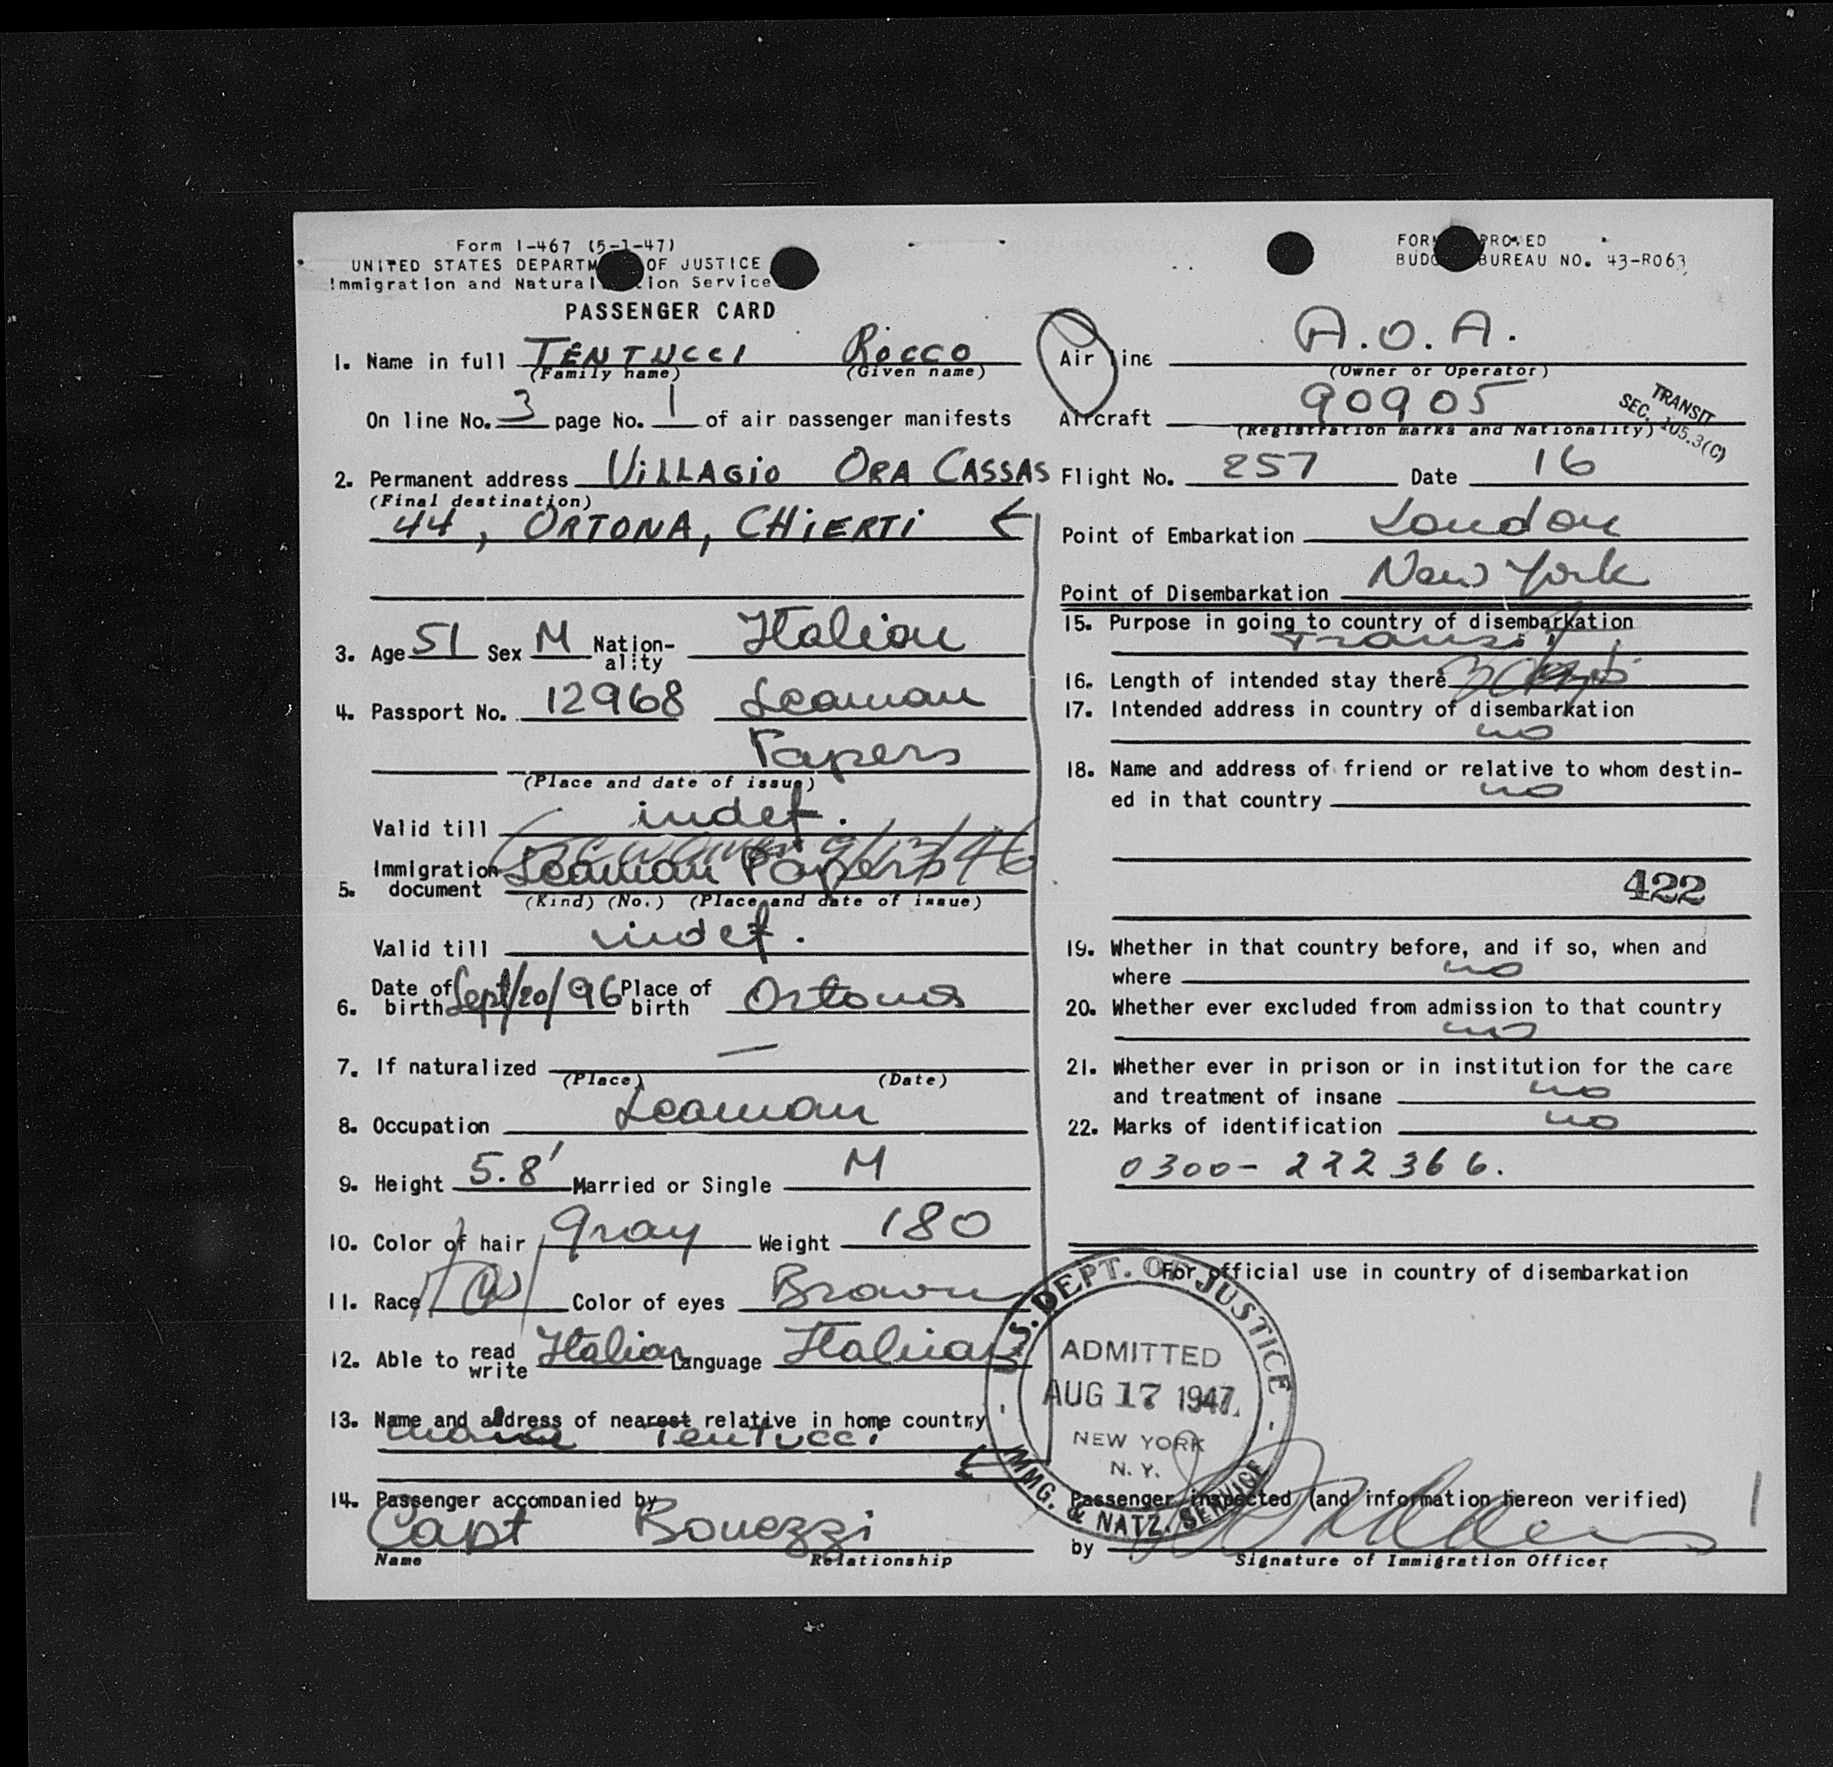 Form I-467 (5-1-47)
UNITED STATES DEPARTM OF JUSTICE
Immigration and Natural tion Service
PASSENGER CARD
1. Name in full TENTUCCI ROCCO
(Family name) (Given name)
On line No. 3 page No. 1 of air passenger manifests
2. Permanent address VILLAGIO ORA CASSAS
(Final destination)
44, ORTONA, CHIERTI
3. Age 51 Sex M Nation-ality Italian
4. Passport No. 12968 Seaman
Papers
(Place and date of issue)
Valid till indef.
5. Immigration document Seaman Papers
(Kind) (No.) (Place and date of issue)
Valid till indef.
6. Date of birth Sept/20/96 Place of birth Ortona
7. If naturalized —
(Place) (Date)
8. Occupation Seaman
9. Height 5.8' Married or Single M
10. Color of hair gray Weight 180
11. Race W Color of eyes Brown
12. Able to read write Italian Language Italian
13. Name and address of nearest relative in home country
Tentucci
14. Passenger accompanied by
Capt Bonezzi
Name Relationship
FORM PROVED
BUDG BUREAU NO. 43-R063
Air line A.O.A.
(Owner or Operator)
Aircraft 90905
(Registration marks and Nationality)
TRANSIT
SEC. 105.3(C)
Flight No. 257 Date 16
Point of Embarkation London
Point of Disembarkation New York
15. Purpose in going to country of disembarkation
Transit
16. Length of intended stay there 3 days
17. Intended address in country of disembarkation
no
18. Name and address of friend or relative to whom destin-
ed in that country no
422
19. Whether in that country before, and if so, when and
where no
20. Whether ever excluded from admission to that country
no
21. Whether ever in prison or in institution for the care
and treatment of insane no
22. Marks of identification no
0300-222366.
For official use in country of disembarkation
U.S. DEPT. OF JUSTICE
ADMITTED
AUG 17 1947
NEW YORK
N.Y.
IMMG. & NATZ. SERVICE
Passenger inspected (and information hereon verified)
by
Signature of Immigration Officer